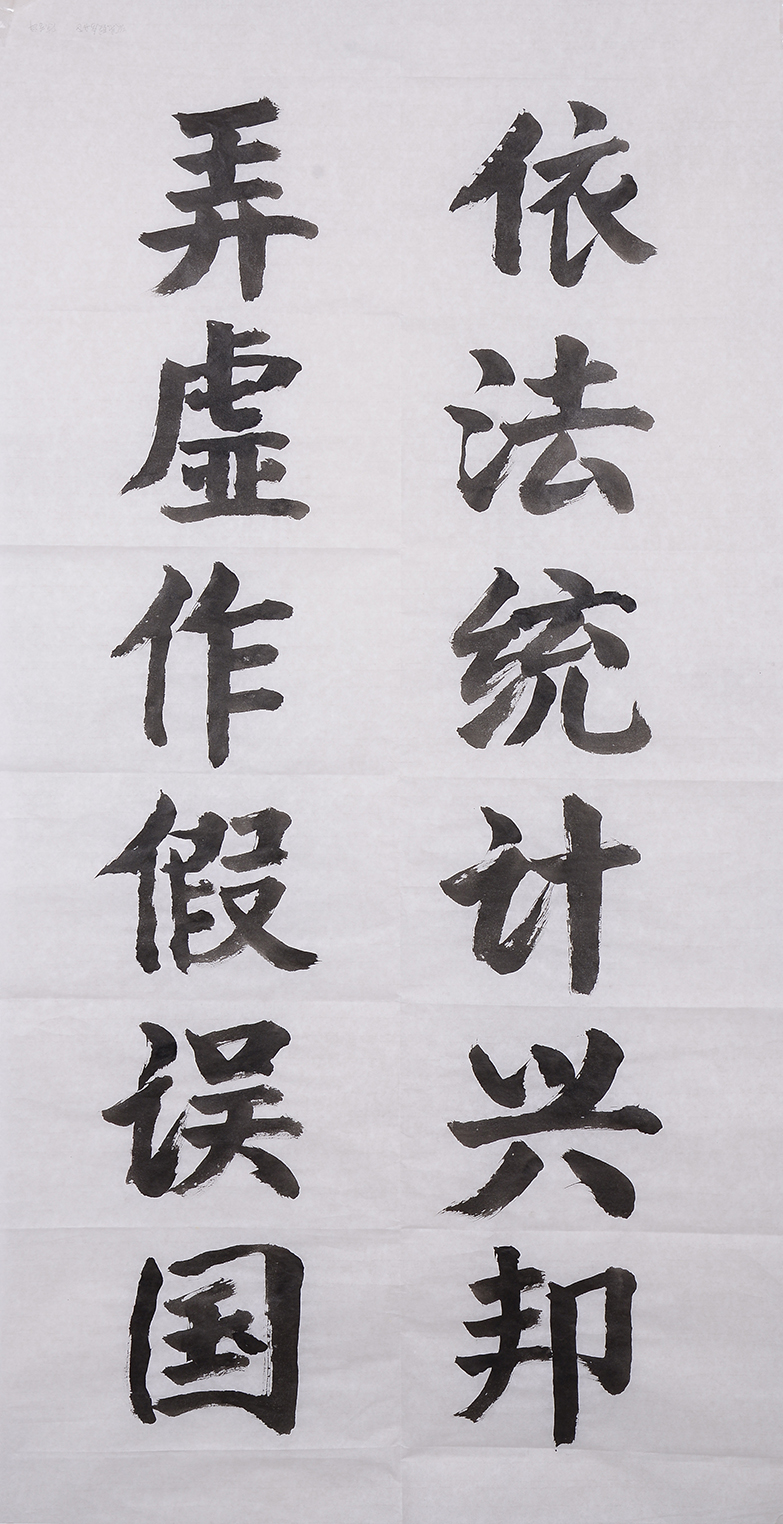 依法统计兴邦
弄虚作假误国